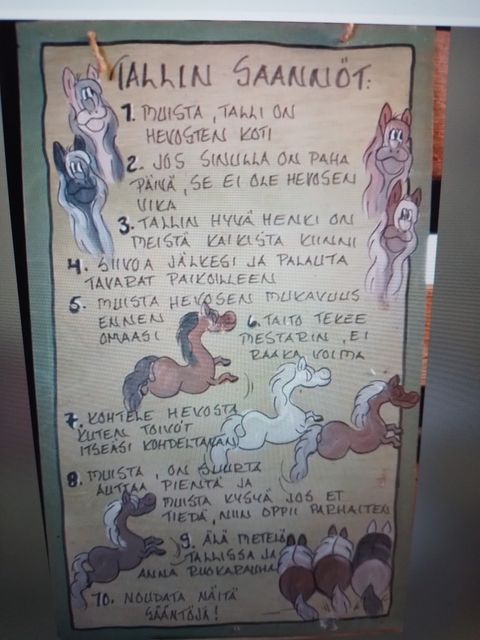 TALLIN SÄÄNNÖT:
1. MUISTA, TALLI ON
HEVOSTEN KOTI
2. JOS SINULLA ON PAHA
PÄIVÄ, SE EI OLE HEVOSEN
VIKA
3. TALLIN HYVÄ HENKI ON
MEISTÄ KAIKISTA KIINNI
4. SIIVOA JÄLKESI JA PALAUTA
TAVARAT PAIKOILLEEN
5. MUISTA HEVOSEN MUKAVUUS
ENNEN
OMAASI
6. TAITO TEKEE
MESTARIN, EI
RAAKA VOIMA
7. KOHTELE HEVOSTA
KUTEN TOIVOT
ITSEÄSI KOHDELTAVAN
8. MUISTA, ON SUURTA
AUTTAA PIENTÄ JA
MUISTA KYSYÄ JOS ET
TIEDÄ, NIIN OPPII PARHAITEN
9. ÄLÄ METELÖI
TALLISSA JA
ANNA RUOKARAUHA
10. NOUDATA NÄITÄ
SÄÄNTÖJÄ!